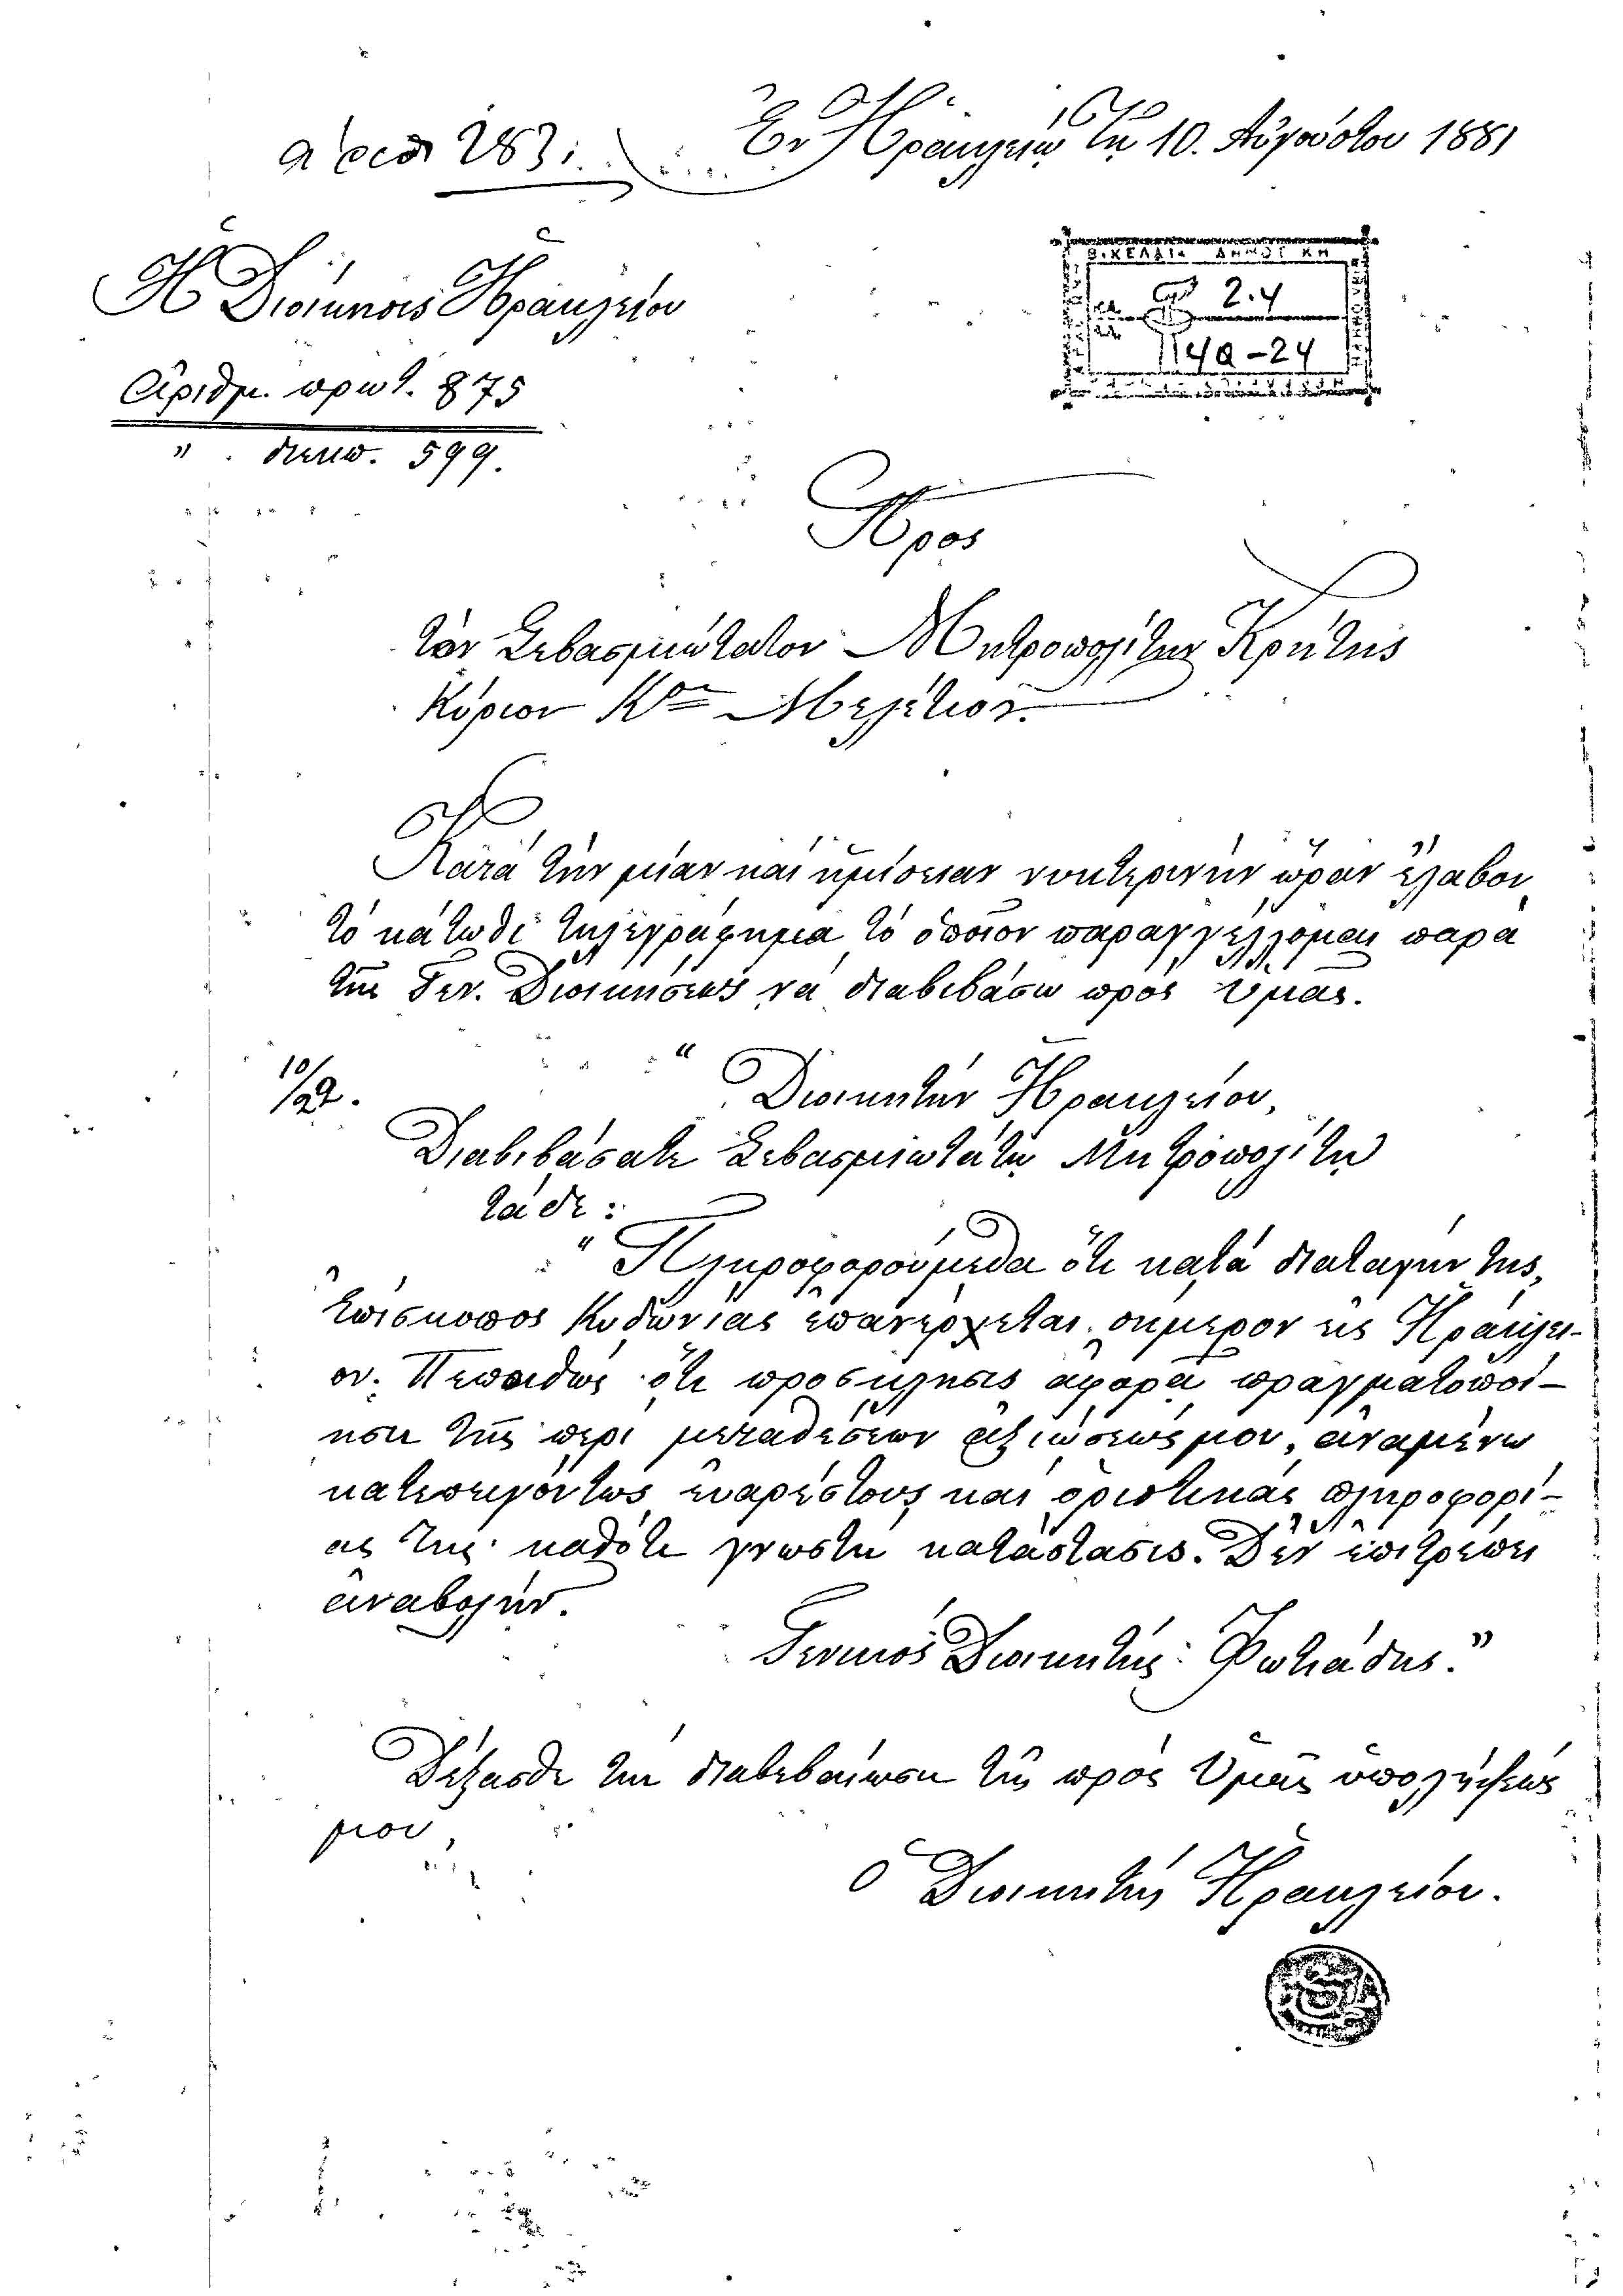 Ἐν Ἡρακλείῳ τῇ 10. Αὐγούστου 1881
283
Ἡ Διοίκησις Ἡρακλείου
Ἀριθμ. πρωτ. 875
" . διεκπ. 599.
2.4
Π4α-24
Πρὸς
τὸν Σεβασμιώτατον Μητροπολίτην Κρήτης
Κύριον Κον Μελέτιον.
Κατὰ τὴν μίαν καὶ ἡμίσειαν νυκτερινὴν ὥραν ἔλαβον
τὸ κάτωθι τηλεγράφημα τὸ ὁποῖον παραγγέλλομαι παρὰ
τῆς Γεν. Διοικήσεως νὰ διαβιβάσω πρὸς Ὑμᾶς.
10/22.
" Διοικητὴν Ἡρακλείου,
Διαβιβάσατε Σεβασμιωτάτῳ Μητροπολίτῃ
τάδε :
" Πληροφορούμεθα ὅτι κατὰ διαταγήν της,
Ἐπίσκοπος Κυδωνίας ἐπανέρχεται σήμερον εἰς Ἡράκλει-
ον. Πεποιθὼς ὅτι πρόσκλησις ἀφορᾷ πραγματοποί-
ησιν τῆς περὶ μεταθέσεων ἀξιώσεώς μου, ἀναμένω
κατεπειγόντως εὐαρέστους καὶ ὁριστικὰς πληροφορί-
ας της καθότι γνωστὴ κατάστασις. Δὲν ἐπιτρέπει
ἀναβολήν.
Γενικὸς Διοικητής: Φωτιάδης."
Δέξασθε τὴν διαβεβαίωσιν τῆς πρὸς Ὑμᾶς ὑπολήψεώς
μου,
Ὁ Διοικητὴς Ἡρακλείου.